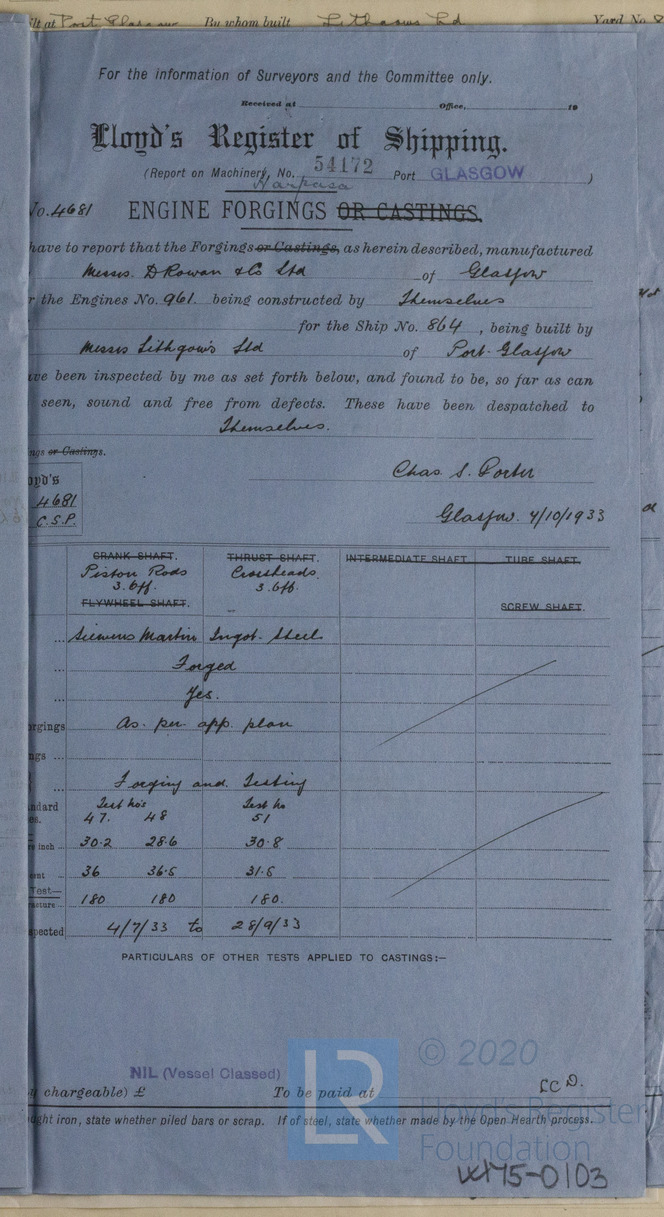 ilt at Port Glasgow By whom built Lithgows Ld Yard No. 8
For the information of Surveyors and the Committee only.
Received at Office, 19
Lloyd's Register of Shipping.
(Report on Machinery, No. 54172 Port GLASGOW )
Harpasa
No. 4681 ENGINE FORGINGS OR CASTINGS.
have to report that the Forgings or Castings, as herein described, manufactured
Messrs. D Rowan & Co Ltd of Glasgow
r the Engines No. 961. being constructed by Themselves
for the Ship No. 864 , being built by
Messrs Lithgow's Ltd of Port-Glasgow
ave been inspected by me as set forth below, and found to be, so far as can
seen, sound and free from defects. These have been despatched to
Themselves.
ngs or Castings.
oyd's
4681
C.S.P.
Chas. S. Porter
Glasgow. 4/10/1933
CRANK SHAFT. THRUST SHAFT. INTERMEDIATE SHAFT TUBE SHAFT.
Piston Rods Crossheads.
3. off. 3. off.
FLYWHEEL SHAFT. SCREW SHAFT.
... Siemens Martin Ingot. Steel
... Forged
... Yes.
orgings As. per. app. plan
ngs ...
... Forging and. Testing
ndard Test No's Test No
es. 47. 48 51
e inch ... 30.2 28.6 30.8
ent ... 36 36.5 31.5
Test—
acture ... 180 180 180.
spected 4/7/33 to 28/9/33
PARTICULARS OF OTHER TESTS APPLIED TO CASTINGS:—
NIL (Vessel Classed)
y chargeable) £ To be paid at
ught iron, state whether piled bars or scrap. If of steel, state whether made by the Open Hearth process.
LR
© 2020
Lloyd's Register
Foundation
W175-0103